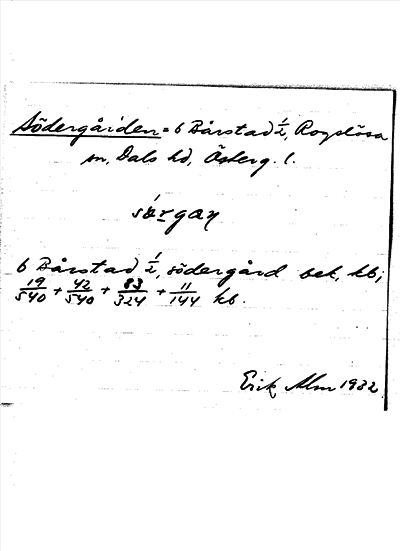 Södergården = 6 Bårstad 1/2, Rogslösa
sn, Dals hd, Österg. l.
sǿrgaɲ
6 Bårstad 1/2, södergård bek, kb;
19/540 + 42/540 + 83/324 + 11/144 kb.
Erik Alm 1932